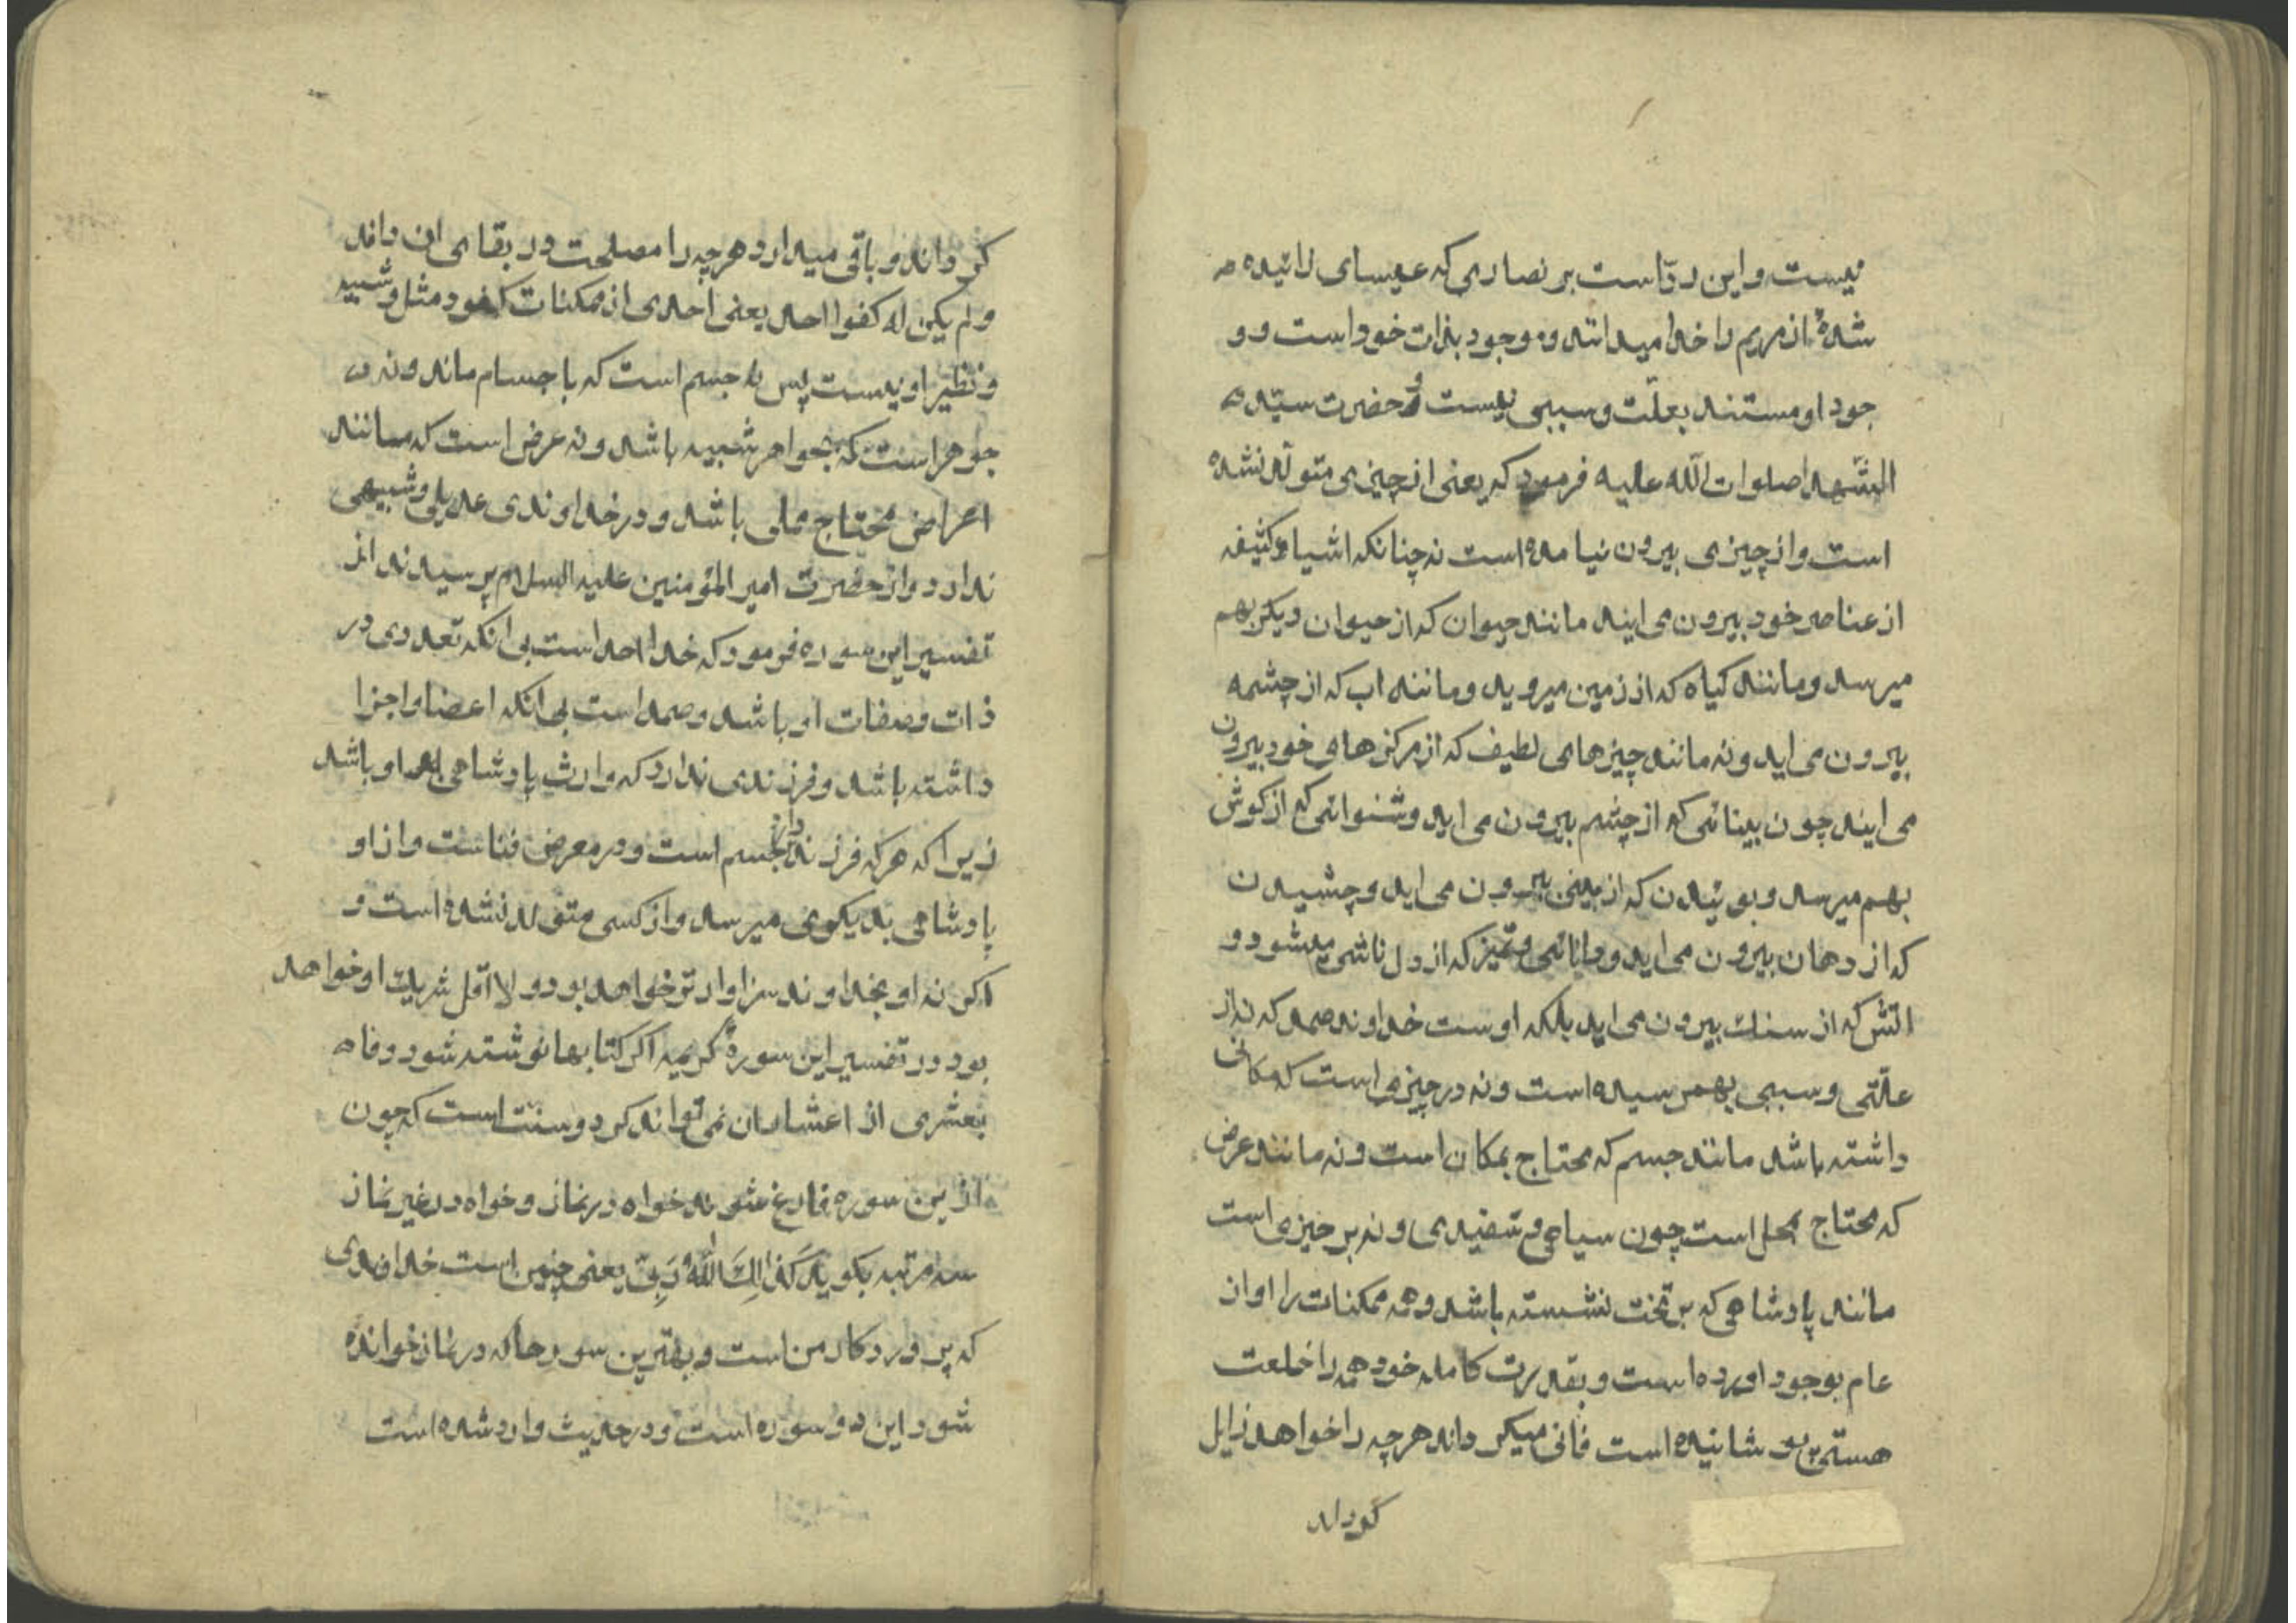 نیست و این ردّ است بر نصاری که عیسای زائیده
شدهٔ از مریم را خدا میدانند و موجود بذات خود است و و
جود او مستند بعلّت و سببی نیست و حضرت سیّد
الشّهدا صلوات اللّه علیه فرمود که یعنی از چیزی متولّد نشده
است و از چیزی بیرون نیامده است نه چنانکه اشیاء کثیفه
از عناصر خود بیرون می ایند مانند حیوان که از حیوان دیکر بهم
میرسد و مانند کیاه که از زمین میروید و مانند اب که از چشمه
بیرون می اید و نه مانند چیزهای لطیف که از مرکزهای خود بیرون
می ایند چون بینائی که از چشم بیرون می اید و شنوائی که از کوش
بهم میرسد و بوئیدن که از بینی بیرون می اید و چشیدن
که از دهان بیرون می اید و دانائی و تمیز که از دل ناشی میشود و
اتش که از سنک بیرون می اید بلکه اوست خداوند صمد که نه از
علّتی و سببی بهم رسیده است و نه در چیزی است که مکانی
داشته باشد مانند جسم که محتاج بمکان است و نه مانند عرض
که محتاج بمحل است چون سیاهی و سفیدی و نه بر چیزی است
مانند پادشاهی که بر تخت نشسته باشد و همه ممکنات را او از
عدم بوجود اورده است و بقدرت کامله خود همه را خلعت
هستی پوشانیده است فانی میکرداند هرچه را خواهد زایل
کرداند
کرداند و باقی میدارد هرچه را مصلحت در بقای ان داند
و لم یکن له کفوا احد یعنی احدی از ممکنات کفو و مثل و شبیه
و نظیر او نیست پس نه جسم است که باجسام ماند و نه
جوهر است که بجواهر شبیه باشد و نه عرض است که مانند
اعراض محتاج محلی باشد و در خداوندی عدیلی و شبیهی
ندارد و از حضرت امیر المؤمنین علیه السلام پرسیدند از
تفسیر این سوره فرمود که خدا احد است بی انکه تعددی در
ذات و صفات او باشد و صمد است بی انکه اعضا و اجزا
داشته باشد و فرزندی ندارد که وارث پادشاهی او باشد
زیرا که هرکه فرزند دارد جسم است و در معرض فناست و از او
پادشاهی بدیکری میرسد و از کسی متولد نشده است و
اکر نه او بخداوند سزاوارتر خواهد بود و لا اقل شریک او خواهد
بود و در تفسیر این سورهٔ کریمه اکر کتابها نوشته شود وفا
بعشری از اعشار ان نمی تواند کرد و سنّت است که چون
از این سوره فارغ شوند خواه در نماز و خواه در غیر نماز
سه مرتبه بکوید کَذٰلِکَ اللّٰهُ رَبّی یعنی چنین است خداوندی
که پروردکار من است و بهترین سورها که در نماز خوانده
شود این دو سوره است و در حدیث وارد شده است